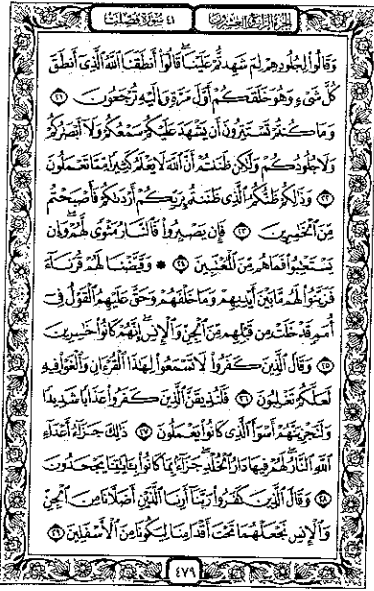 الجزء الرابع والعشرون ٤١ سورة فصلت
وَقَالُوا۟ لِجُلُودِهِمْ لِمَ شَهِدتُّمْ عَلَيْنَا ۖ قَالُوٓا۟ أَنطَقَنَا ٱللَّهُ ٱلَّذِىٓ أَنطَقَ
كُلَّ شَىْءٍ وَهُوَ خَلَقَكُمْ أَوَّلَ مَرَّةٍ وَإِلَيْهِ تُرْجَعُونَ ٢١
وَمَا كُنتُمْ تَسْتَتِرُونَ أَن يَشْهَدَ عَلَيْكُمْ سَمْعُكُمْ وَلَآ أَبْصَٰرُكُمْ
وَلَا جُلُودُكُمْ وَلَٰكِن ظَنَنتُمْ أَنَّ ٱللَّهَ لَا يَعْلَمُ كَثِيرًا مِّمَّا تَعْمَلُونَ
٢٢ وَذَٰلِكُمْ ظَنُّكُمُ ٱلَّذِى ظَنَنتُم بِرَبِّكُمْ أَرْدَىٰكُمْ فَأَصْبَحْتُم
مِّنَ ٱلْخَٰسِرِينَ ٢٣ فَإِن يَصْبِرُوا۟ فَٱلنَّارُ مَثْوًى لَّهُمْ ۖ وَإِن
يَسْتَعْتِبُوا۟ فَمَا هُم مِّنَ ٱلْمُعْتَبِينَ ٢٤ ۞ وَقَيَّضْنَا لَهُمْ قُرَنَآءَ
فَزَيَّنُوا۟ لَهُم مَّا بَيْنَ أَيْدِيهِمْ وَمَا خَلْفَهُمْ وَحَقَّ عَلَيْهِمُ ٱلْقَوْلُ فِىٓ
أُمَمٍ قَدْ خَلَتْ مِن قَبْلِهِم مِّنَ ٱلْجِنِّ وَٱلْإِنسِ ۖ إِنَّهُمْ كَانُوا۟ خَٰسِرِينَ
٢٥ وَقَالَ ٱلَّذِينَ كَفَرُوا۟ لَا تَسْمَعُوا۟ لِهَٰذَا ٱلْقُرْءَانِ وَٱلْغَوْا۟ فِيهِ
لَعَلَّكُمْ تَغْلِبُونَ ٢٦ فَلَنُذِيقَنَّ ٱلَّذِينَ كَفَرُوا۟ عَذَابًا شَدِيدًا
وَلَنَجْزِيَنَّهُمْ أَسْوَأَ ٱلَّذِى كَانُوا۟ يَعْمَلُونَ ٢٧ ذَٰلِكَ جَزَآءُ أَعْدَآءِ
ٱللَّهِ ٱلنَّارُ ۖ لَهُمْ فِيهَا دَارُ ٱلْخُلْدِ ۖ جَزَآءًۢ بِمَا كَانُوا۟ بِـَٔايَٰتِنَا يَجْحَدُونَ
٢٨ وَقَالَ ٱلَّذِينَ كَفَرُوا۟ رَبَّنَآ أَرِنَا ٱلَّذَيْنِ أَضَلَّانَا مِنَ ٱلْجِنِّ
وَٱلْإِنسِ نَجْعَلْهُمَا تَحْتَ أَقْدَامِنَا لِيَكُونَا مِنَ ٱلْأَسْفَلِينَ ٢٩
٤٧٩